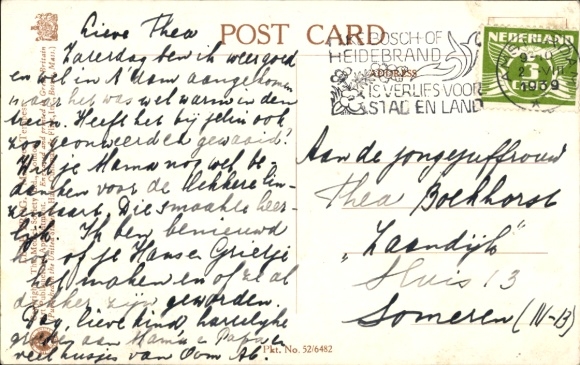 POST CARD
Lieve Thea
Zaterdag ben ik weer goed
en wel in A'dam aangekomen
maar het was wel warm in den
trein. Heeft het bij jullie ook
zoo geonweerd en gewaaid?
Wil je Mama nog wel be-
danken voor de lekkere
Die smaakte heer-
lijk. Ik ben benieuwd
hoe of je Hans en Grietje
het maken en of ze al
dikker zijn geworden.
Dag, lieve kind, hartelijke
groeten aan Mama en Papa en
veel kusjes van Oom Ab.
BOSCH- OF
HEIDEBRAND
IS VERLIES VOOR
STAD EN LAND
NEDERLAND
1939
ADDRESS
Aan de jongejuffrouw
Thea Bockhorst
"Zaandijk"
Sluis 13
Someren (N-B)
Pkt. No. 52/6482